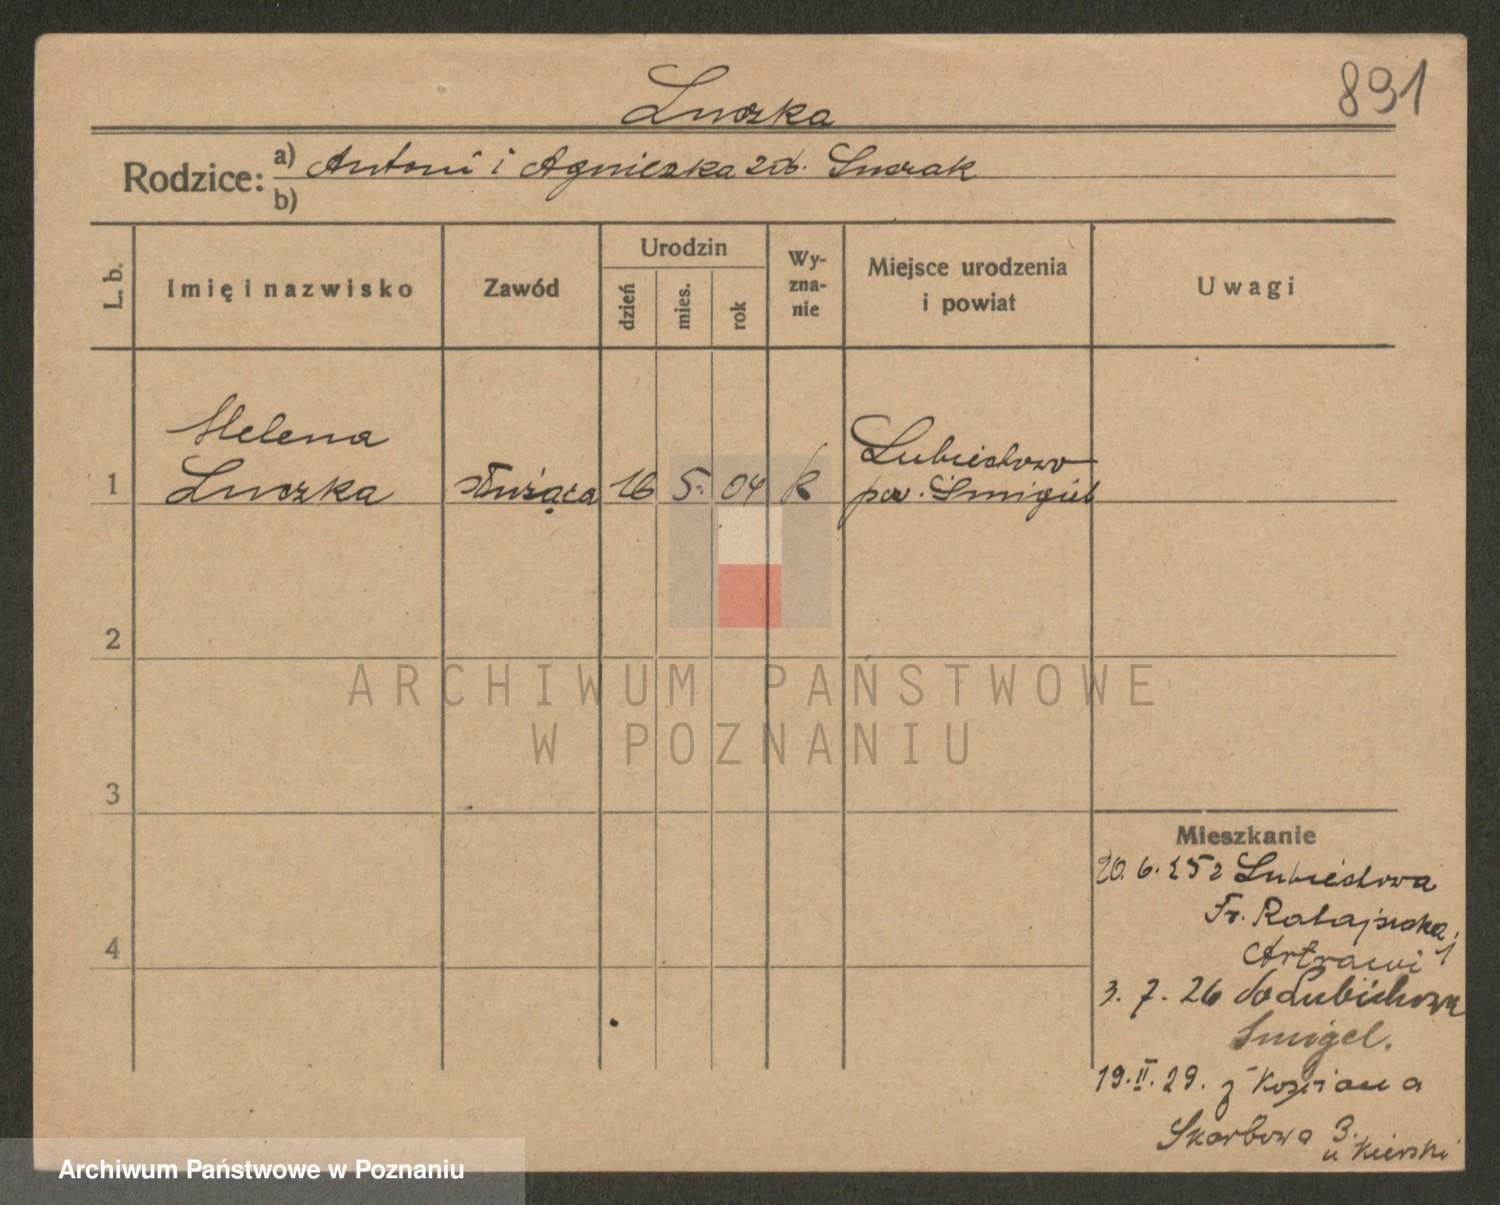 891
Luczka
Rodzice: a) Antoni i Agnieszka zd.
b)
L. b.
Imię i nazwisko
Zawód
Urodzin
dzień
mies.
rok
Wy-
zna-
nie
Miejsce urodzenia
i powiat
Uwagi
1
Helena
Luczka
służąca
16
5.
04
k
Lubiechowo
pow. Śmigiel
2
3
4
Mieszkanie
20. 6. 25 z Lubiechowa
Fr. Ratajczaka
1
3. 7. 26 do Lubichowa
Śmigel.
19. II. 29. z Kościana
Skarbowa 3.
u Kierski
ARCHIWUM PAŃSTWOWE
W POZNANIU
Archiwum Państwowe w Poznaniu